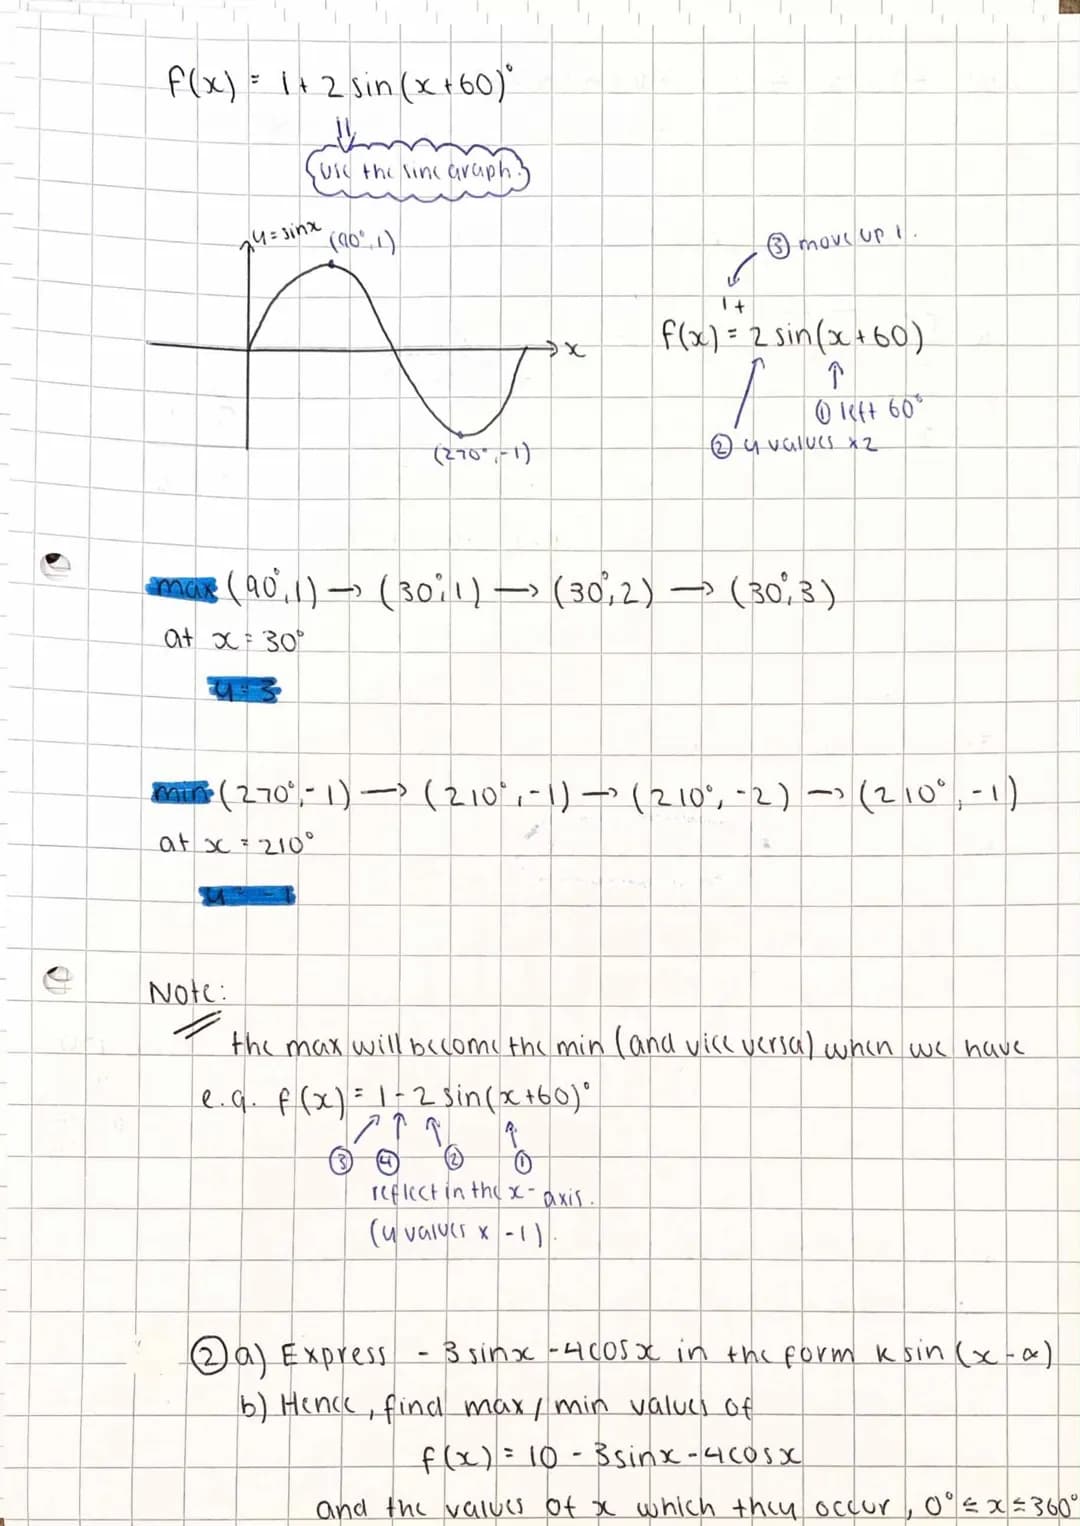 f(x) = 1 + 2 sin(x+60)°
use the sine graph.
y = sinx
(90°, 1)
x
(270°, -1)
③ move up 1.
1+
f(x) = 2 sin(x+60)
① left 60°
② y values x2
max (90°, 1) → (30°, 1) → (30°, 2) → (30°, 3)
at x = 30°
y = 3
min (270°, -1) → (210°, -1) → (210°, -2) → (210°, -1)
at x = 210°
y = -1
Note:
the max will become the min (and vice versa) when we have
e.g. f(x) = 1 - 2 sin(x+60)°
③ ④ ② ①
reflect in the x-axis.
(y values x -1).
② a) Express - 3 sinx - 4 cosx in the form k sin (x - α)
b) Hence, find max / min values of
f(x) = 10 - 3 sinx - 4 cosx
and the values of x which they occur, 0° ≤ x ≤ 360°